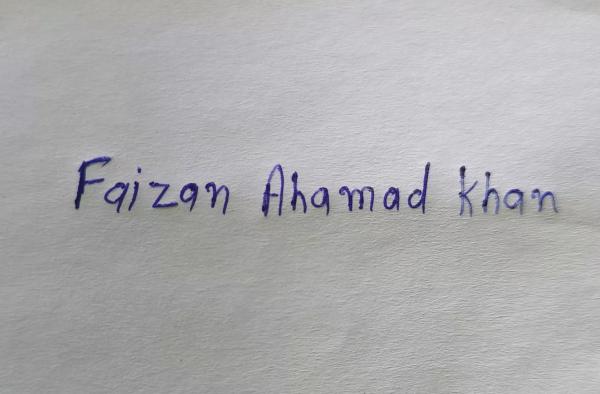 Faizan Ahamad Khan